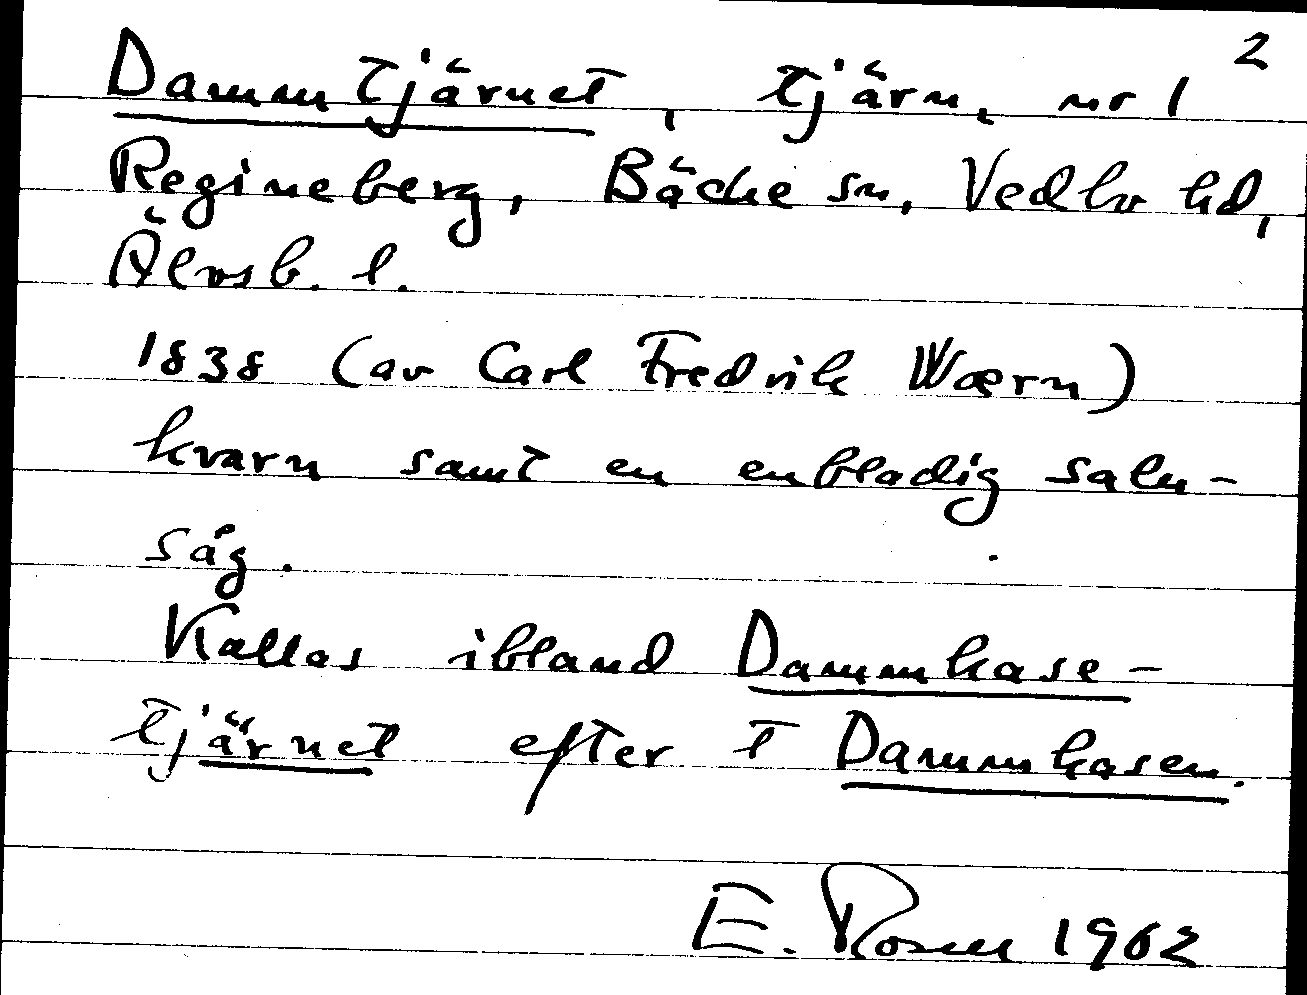 2
Dammtjärnet, tjärn, nr 1
Regineberg, Bäcke sn, Vedbo hd,
Älvsb. l.
1838 (av Carl Fredrik Wærn)
kvarn samt en enbladig salu-
såg.
Kallas ibland Dammkase-
tjärnet efter t Dammkasen.
E. Rosen 1962